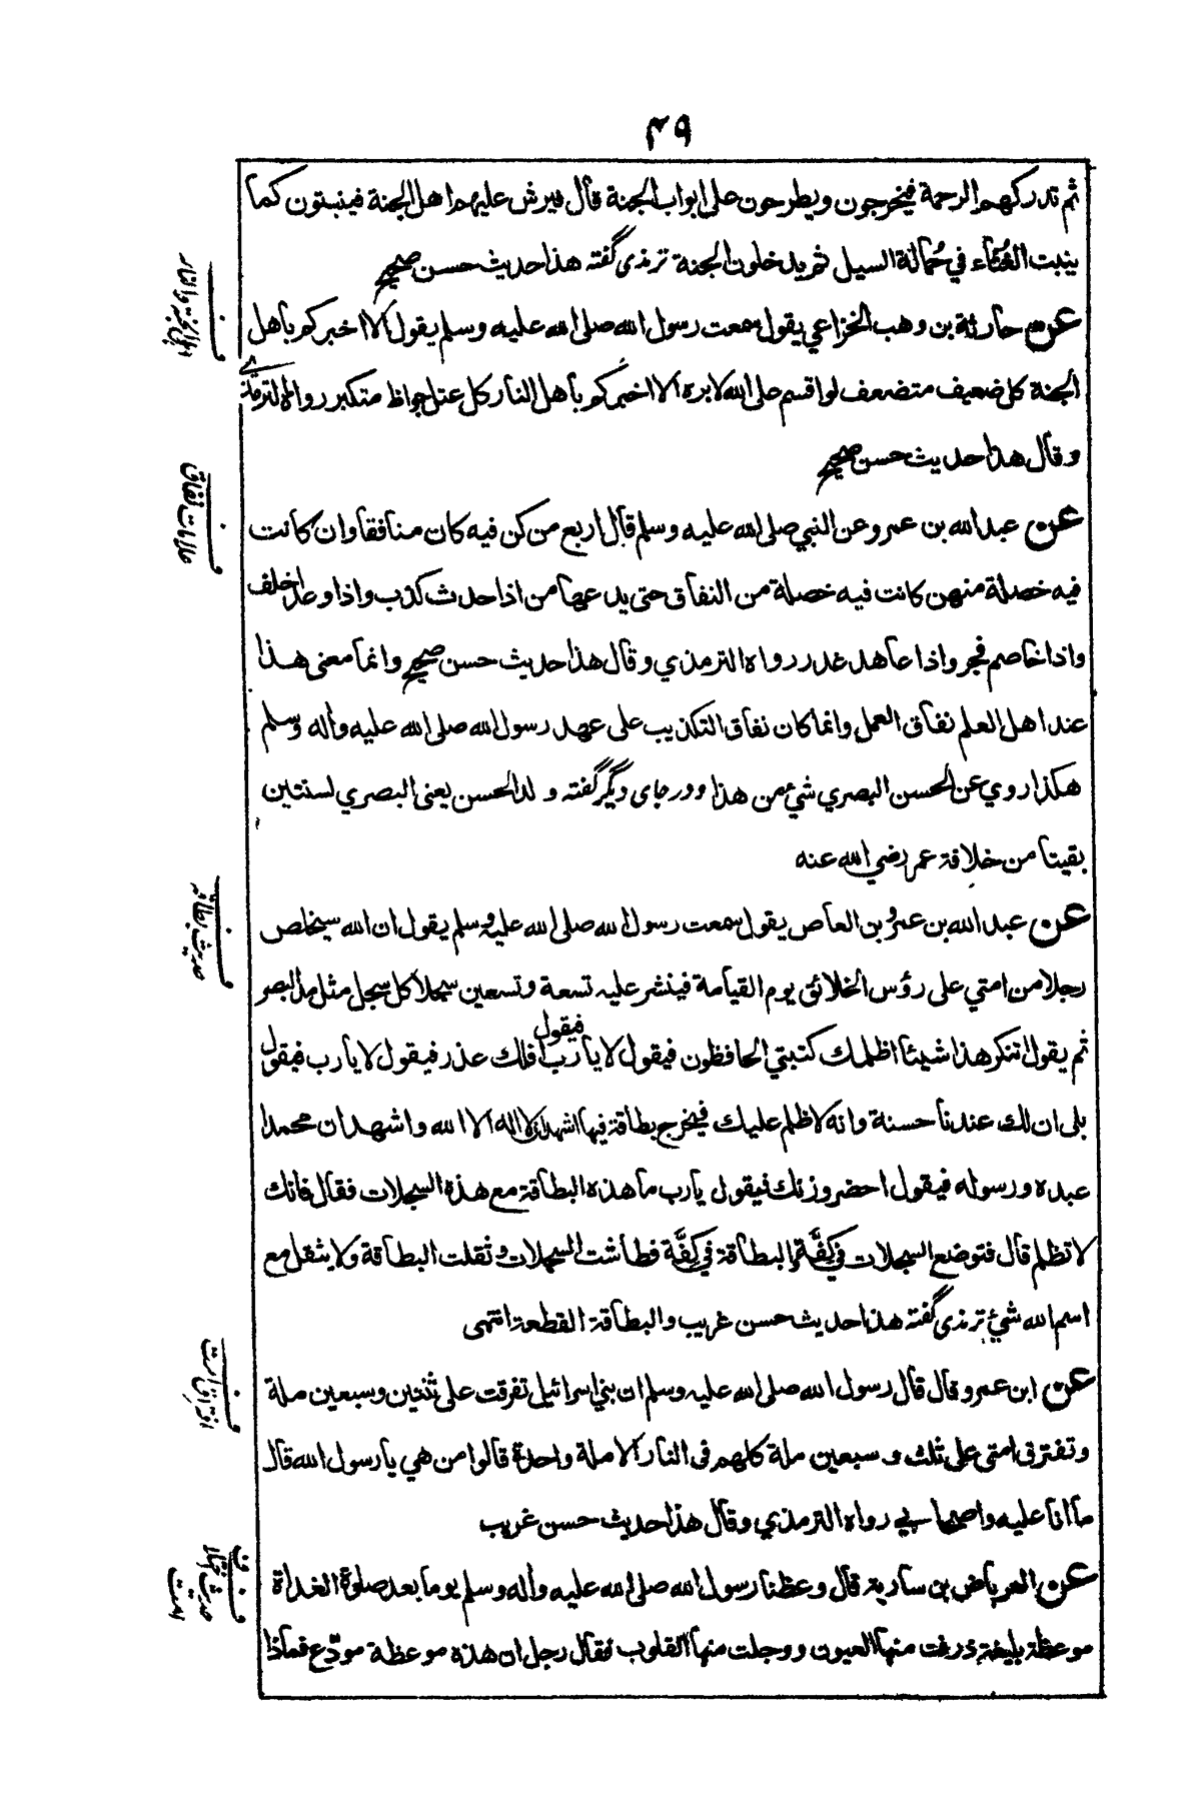 ۴۹
ثم تدركهم الرحمة فيخرجون ويطرحون على ابواب الجنة قال فيرش عليهم اهل الجنة فينبتون كما
ينبت الغُثاء في حُمالة السيل ثم يدخلون الجنة ترمذی گفته هذا حديث حسن صحيح
عن حارثة بن وهب الخزاعي يقول سمعت رسول الله صلى الله عليه وسلم يقول الا اخبركم باهل
الجنة كل ضعيف متضعف لو اقسم على الله لابره الا اخبركم باهل النار كل عتل جواظ متكبر رواه الترمذي
وقال هذا حديث حسن صحيح
عن عبدالله بن عمرو عن النبي صلى الله عليه وسلم قال اربع من كن فيه كان منافقا وان كانت
فيه خصلة منهن كانت فيه خصلة من النفاق حتى يدعها من اذا حدث كذب واذا وعد اخلف
واذا خاصم فجر واذا عاهد غدر رواه الترمذي وقال هذا حديث حسن صحيح وانما معنى هذا
عند اهل العلم نفاق العمل وانما كان نفاق التكذيب على عهد رسول الله صلى الله عليه واله وسلم
هكذا روي عن الحسن البصري شئ من هذا ودر جای دیگر گفته ولد الحسن يعنى البصري لسنتين
بقيتا من خلافة عمر رضي الله عنه
عن عبد الله بن عمرو بن العاص يقول سمعت رسول الله صلى الله عليه وسلم يقول ان الله سيخلص
رجلا من امتي على رؤس الخلائق يوم القيامة فينشر عليه تسعة وتسعين سجلا كل سجل مثل مد البصر
ثم يقول اتنكر هذا شيئا اظلمك كتبتي الحافظون فيقول لا يا رب فيقول افلك عذر فيقول لا يا رب فيقول
بلى ان لك عندنا حسنة وانه لا ظلم عليك فيخرج بطاقة فيها اشهد ان لا اله الا الله واشهد ان محمدا
عبده ورسوله فيقول احضر وزنك فيقول يا رب ما هذه البطاقة مع هذه السجلات فقال فانك
لا تظلم قال فتوضع السجلات في كِفَّة والبطاقة في كِفَّة فطاشت السجلات وثقلت البطاقة ولا يثقل مع
اسم الله شئ ترمذی گفته هذا حديث حسن غريب والبطاقة القطعة انتهى
عن ابن عمرو قال قال رسول الله صلى الله عليه وسلم ان بني اسرائيل تفرقت على ثنتين وسبعين ملة
وتفترق امتي على ثلث وسبعين ملة كلهم فى النار الا ملة واحدة قالوا من هي يا رسول الله قال
ما انا عليه واصحابي رواه الترمذي وقال هذا حديث حسن غريب
عن العرباض بن سارية قال وعظنا رسول الله صلى الله عليه واله وسلم يوما بعد صلوة الغداة
موعظة بليغة ذرفت منها العيون ووجلت منها القلوب فقال رجل ان هذه موعظة مودّع فماذا
علامات نفاق
حديث بطاقه
افتراق امت